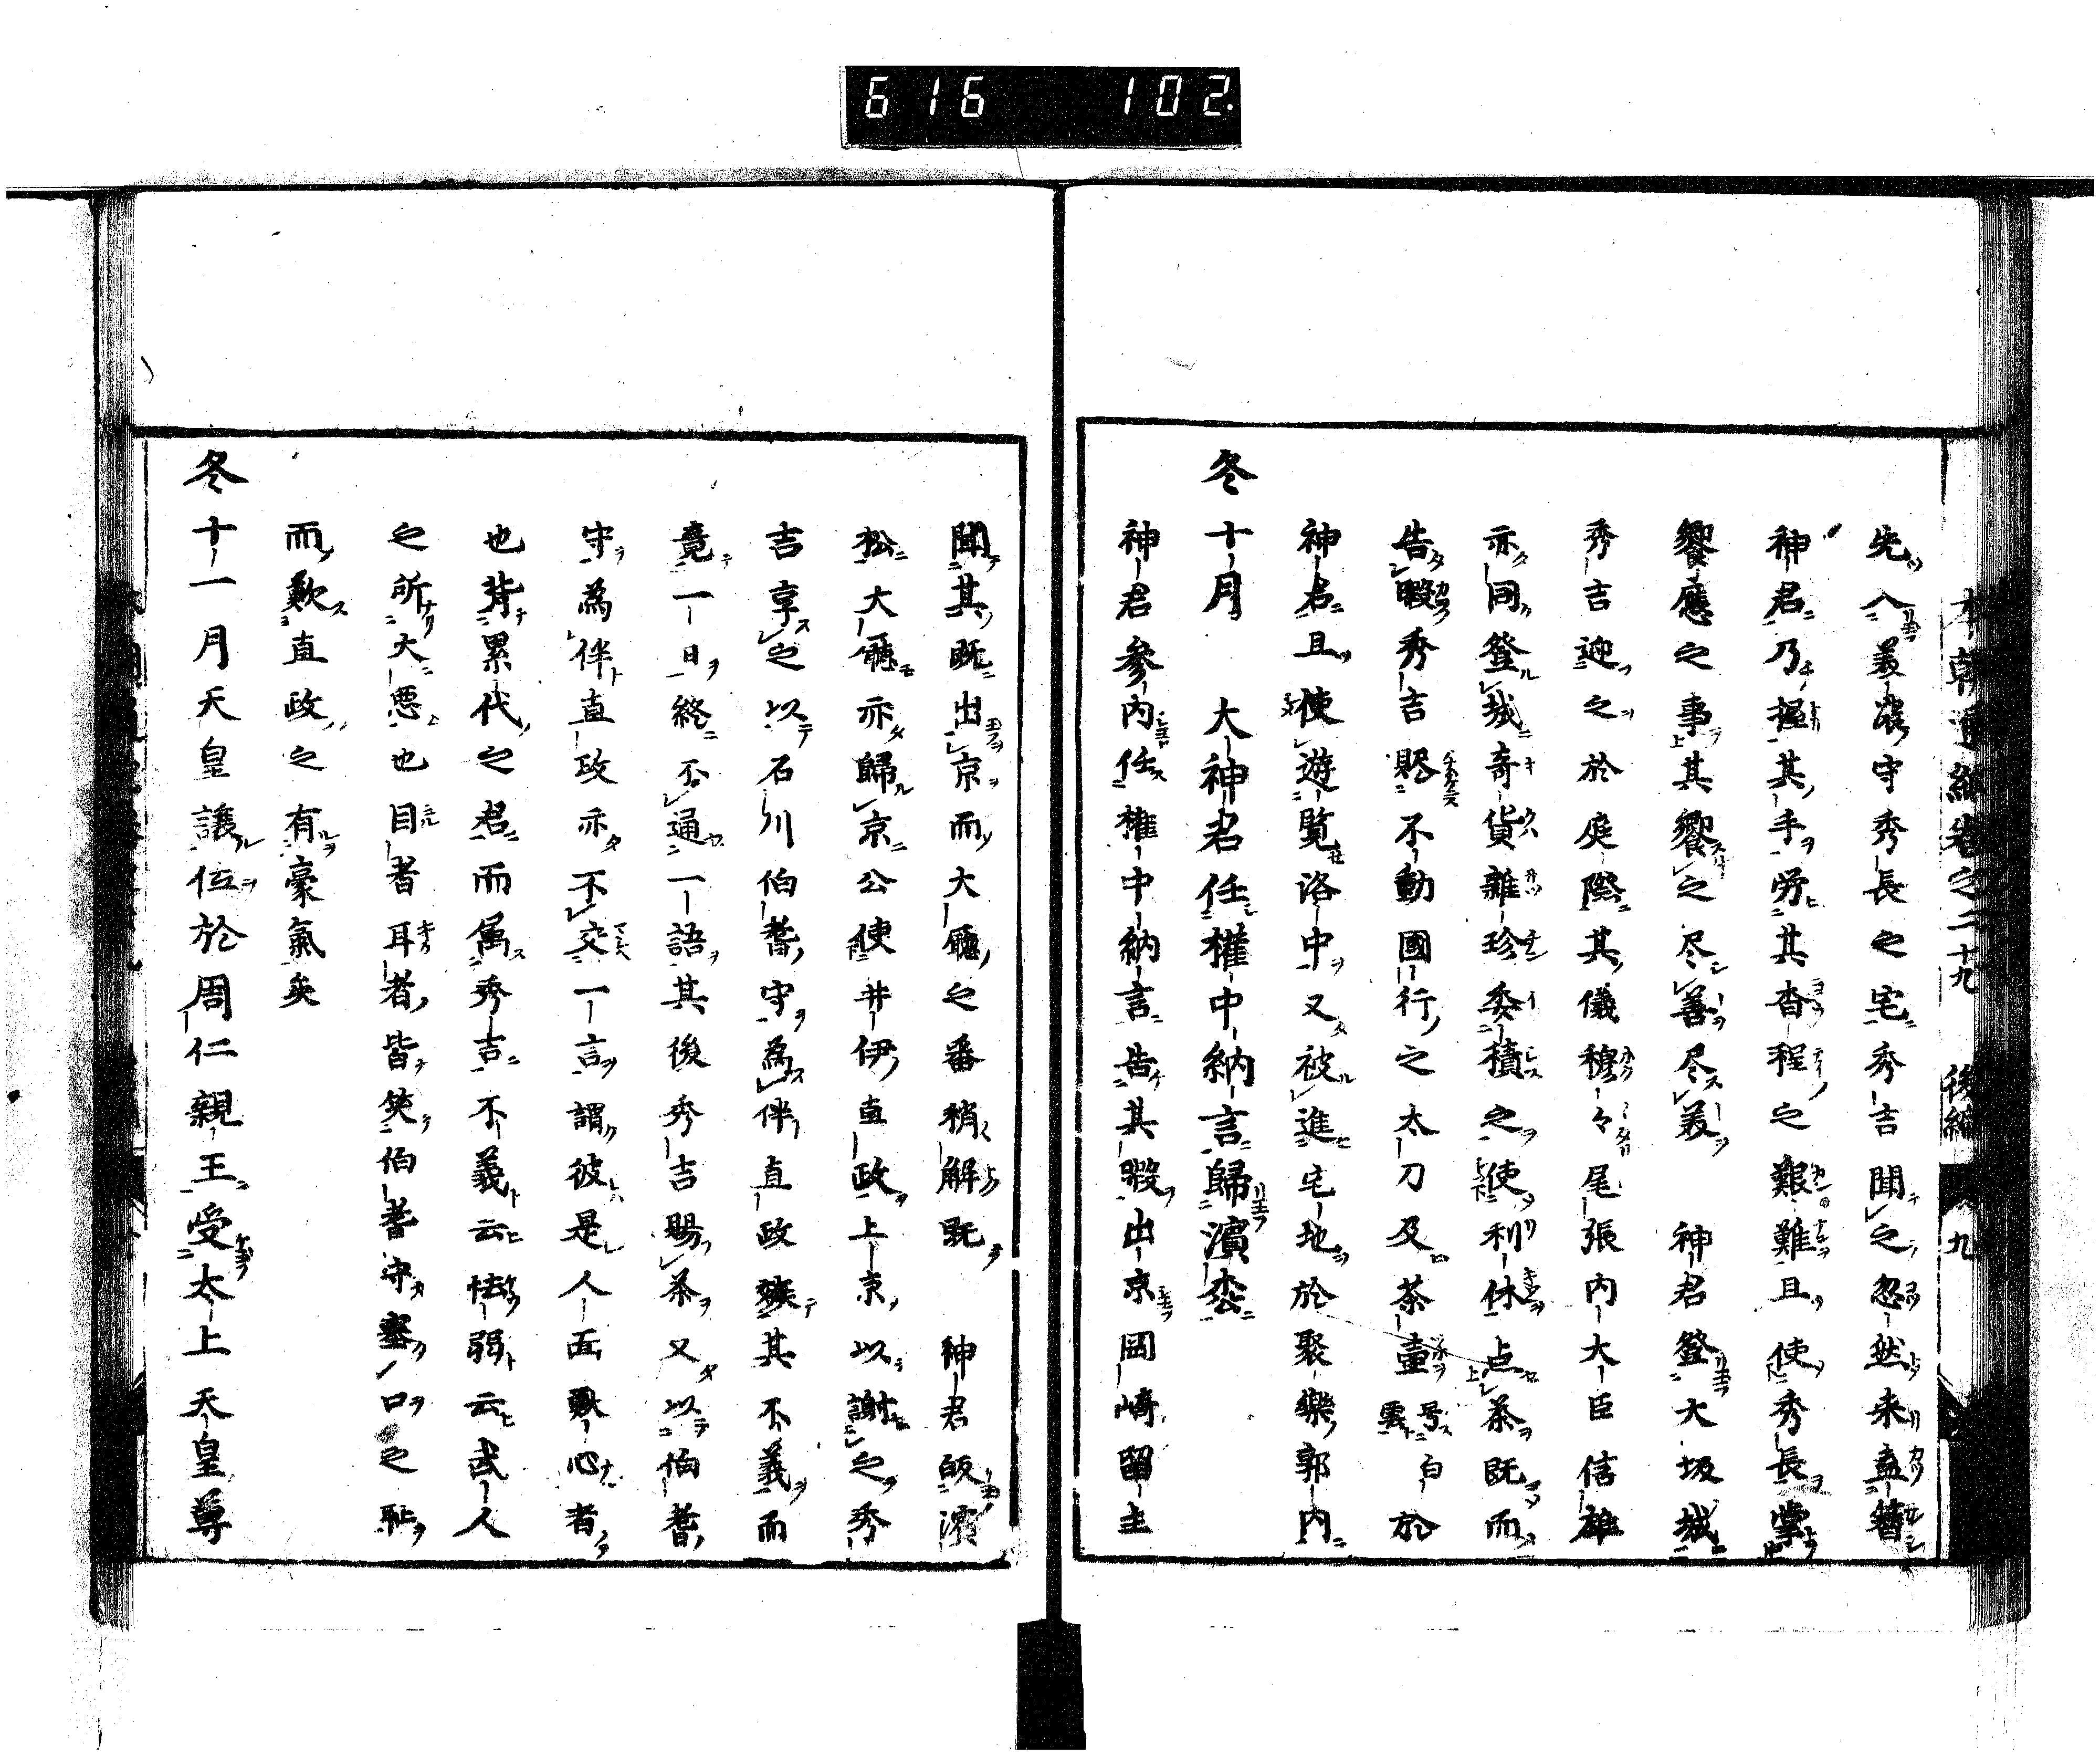 616 102
本朝通紀卷之二十九 後編 九
先入美濃守秀長之宅秀吉聞之忽然来盍簪
神君乃握其手労其杳程之艱難且使秀長掌
饗應之事其饗之尽善尽美 神君登大坂城
秀吉迎之於庭際其儀穆々尾張内大臣信雄
亦同登城奇貨雜珍委積之使利休点茶既而
告暇秀吉賜不動國行之太刀及茶壷号白雲於
神君且使遊覧洛中又被進宅地於聚樂郭内
冬十月 大神君任權中納言歸濱松
神君參内任權中納言告其暇出京岡崎留主
聞其既出京而大廳之番稍解既 神君皈濱
松大廳亦歸京公使井伊直政上京以謝之秀
吉享之以石川伯耆守為伴直政嫉其不義而
竟一日終不通一語其後秀吉賜茶又以伯耆
守為伴直政亦不交一言謂彼是人面獣心者
也背累代之君而属秀吉不義云怯弱云武人
之所大悪也目者耳者皆笑伯耆守塞口之恥
而歎直政之有豪氣矣
冬十一月天皇讓位於周仁親王受太上天皇尊